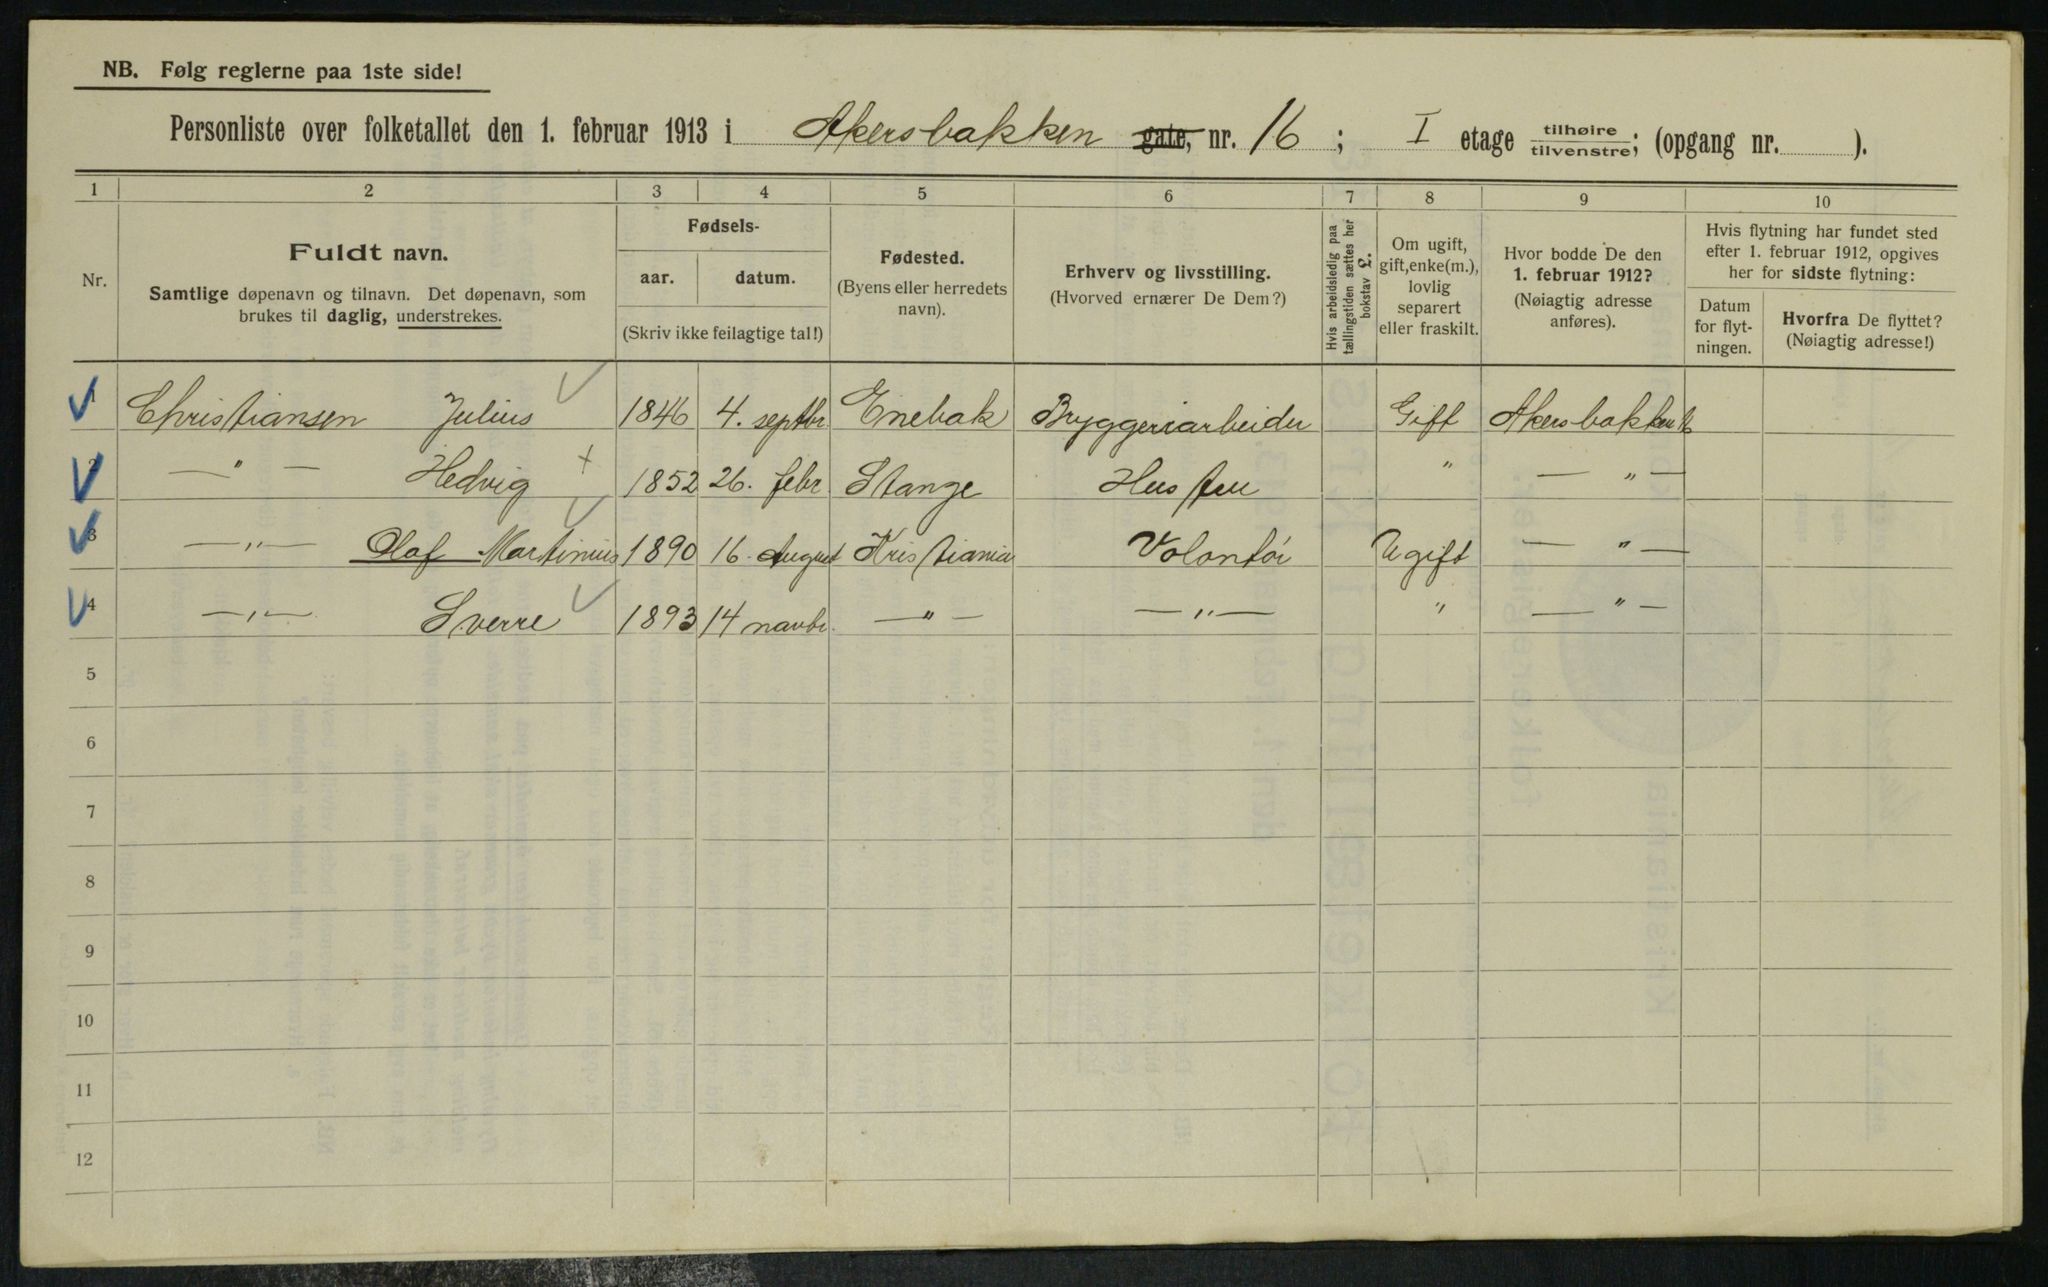 NB. Følg reglerne paa 1ste side!
Personliste over folketallet den 1. februar 1913 i Akersbakken gate, nr. 16 ; I etage tilhøire tilvenstre; (opgang nr. ).
1 2 3 4 5 6 7 8 9 10
Nr.
Fuldt navn.
Samtlige døpenavn og tilnavn. Det døpenavn, som
brukes til daglig, understrekes.
Fødsels-
aar. datum.
(Skriv ikke feilagtige tal!)
Fødested.
(Byens eller herredets
navn).
Erhverv og livsstilling.
(Hvorved ernærer De Dem?)
Hvis arbeidsledig paa
tællingstiden sættes her
bokstav L.
Om ugift,
gift, enke(m.),
lovlig
separert
eller fraskilt.
Hvor bodde De den
1. februar 1912?
(Nøiagtig adresse
anføres).
Hvis flytning har fundet sted
efter 1. februar 1912, opgives
her for sidste flytning:
Datum
for flyt-
ningen.
Hvorfra De flyttet?
(Nøiagtig adresse!)
1 Christiansen Julius 1846 4. septbr Enebak Bryggeriarbeider Gift Akersbakken 16
2 — " — Hedvig 1852 26. febr Stange Hustru " — " —
3 — " — Olaf Martinius 1890 16 August Kristiania Volontör Ugift — " —
4 — " — Sverre 1893 14 novbr. — " — — " — " — " —
5
6
7
8
9
10
11
12